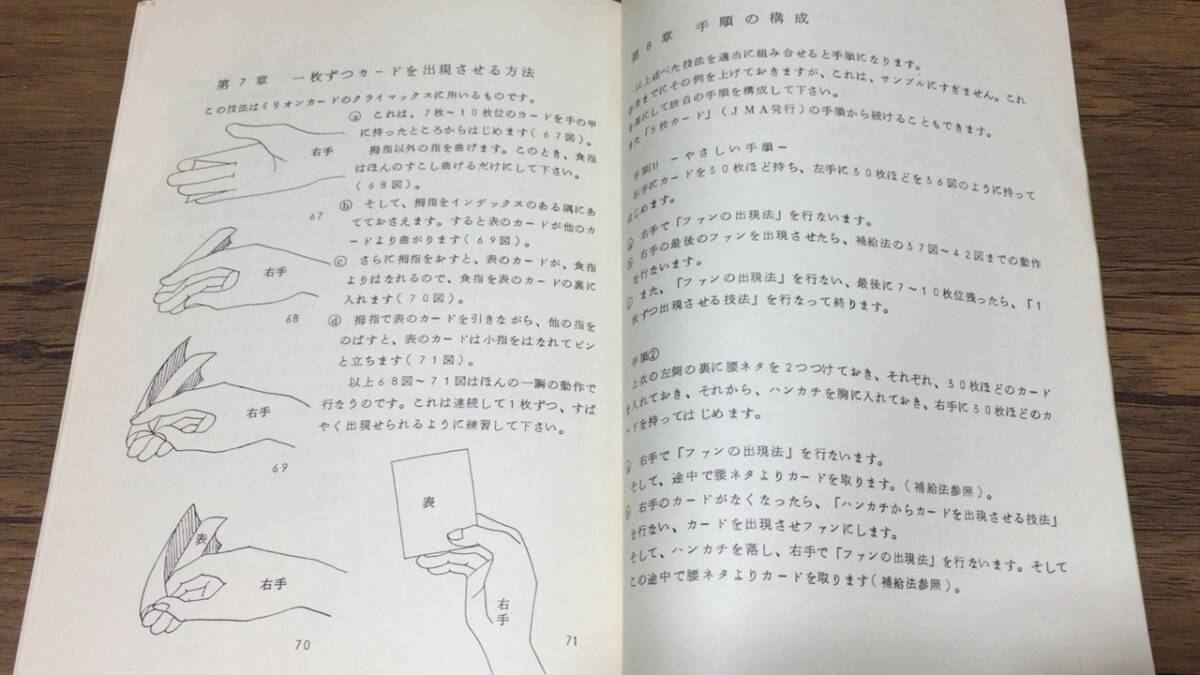 第7章 一枚ずつカードを出現させる方法
この技法はミリオンカードのクライマックスに用いるものです。
ⓐ これは、7枚～10枚位のカードを手の甲
に持ったところからはじめます(67図)。
拇指以外の指を曲げます。このとき、食指
はほんのすこし曲げるだけにして下さい。
(68図)。
ⓑ そして、拇指をインデックスのある隅にあ
てておさえます。すると表のカードが他のカ
ードより曲がります(69図)。
ⓒ さらに拇指をおすと、表のカードが、食指
よりはなれるので、食指を表のカードの裏に
入れます(70図)。
ⓓ 拇指で表のカードを引きながら、他の指を
のばすと、表のカードは小指をはなれてピン
と立ちます(71図)。
以上68図～71図はほんの一瞬の動作で
行なうのです。これは連続して1枚ずつ、すば
やく出現せられるように練習して下さい。
右手
67
右手
68
右手
69
表
右手
70
表
右手
71
第8章 手順の構成
以上述べた技法を適当に組み合せると手順になります。
参考までにその例を上げておきますが、これは、サンプルにすぎません。これ
を基にして独自の手順を構成して下さい。
また「5枚カード」(JMA発行)の手順から続けることもできます。
手順(1) −やさしい手順−
右手にカードを30枚ほど持ち、左手に30枚ほどを36図のように持って
はじめます。
ⓐ 右手で「ファンの出現法」を行ないます。
ⓑ 右手の最後のファンを出現させたら、補給法の37図～42図までの動作
を行ないます。
ⓒ また、「ファンの出現法」を行ない、最後に7～10枚位残ったら、「1
枚ずつ出現させる技法」を行なって終ります。
手順②
上衣の左側の裏に腰ネタを2つつけておき、それぞれ、30枚ほどのカード
を入れておき、それから、ハンカチを胸に入れておき、右手に30枚ほどのカ
ードを持ってはじめます。
ⓐ 右手で「ファンの出現法」を行ないます。
そして、途中で腰ネタよりカードを取ります。(補給法参照)。
ⓑ 右手のカードがなくなったら、「ハンカチからカードを出現させる技法」
を行ない、カードを出現させファンにします。
そして、ハンカチを落し、右手で「ファンの出現法」を行ないます。そして
この途中で腰ネタよりカードを取ります(補給法参照)。